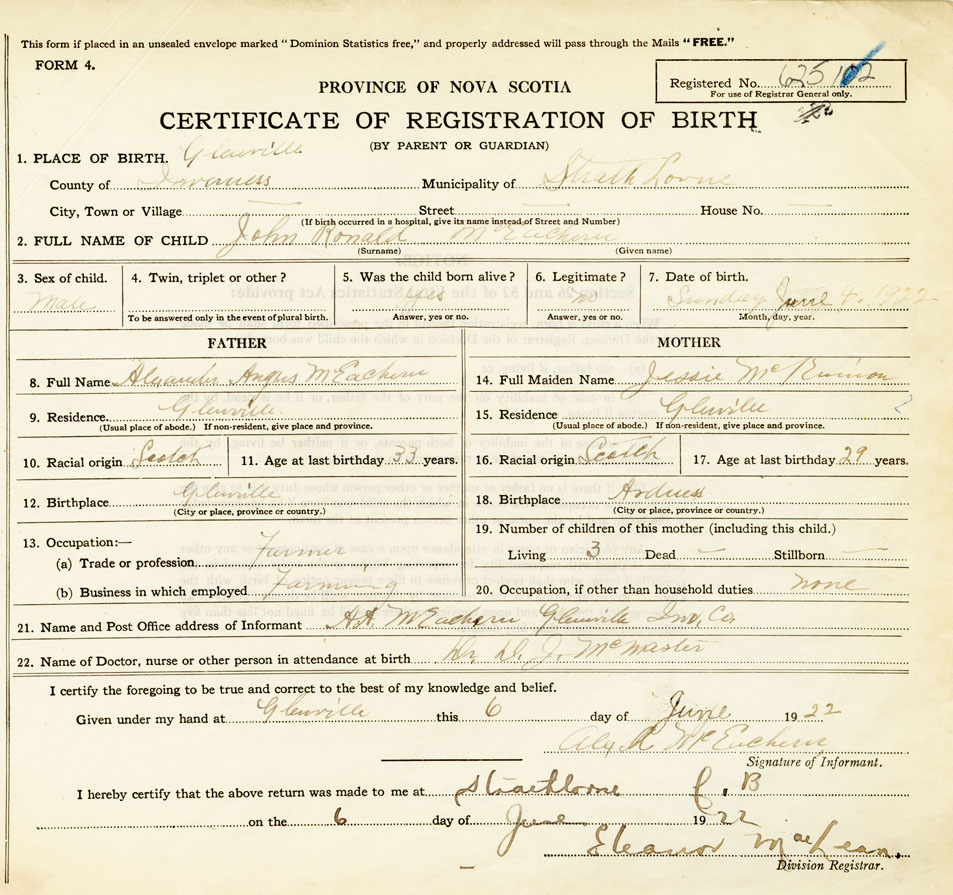 This form if placed in an unsealed envelope marked "Dominion Statistics free," and properly addressed will pass through the Mails "FREE."
FORM 4.
Registered No. 625102
For use of Registrar General only.
PROVINCE OF NOVA SCOTIA
CERTIFICATE OF REGISTRATION OF BIRTH
(BY PARENT OR GUARDIAN)
1. PLACE OF BIRTH. Glenville
County of Inverness Municipality of Strath Lorne
City, Town or Village — Street — House No. —
(If birth occurred in a hospital, give its name instead of Street and Number)
2. FULL NAME OF CHILD John Ronald McEachern
(Surname) (Given name)
3. Sex of child. 4. Twin, triplet or other? 5. Was the child born alive? 6. Legitimate? 7. Date of birth.
Male Yes Sunday June 4, 1922
To be answered only in the event of plural birth. Answer, yes or no. Answer, yes or no. Month, day, year.
FATHER MOTHER
8. Full Name Alexander Angus McEachern 14. Full Maiden Name Jessie McKinnon
9. Residence Glenville 15. Residence Glenville
(Usual place of abode.) If non-resident, give place and province. (Usual place of abode.) If non-resident, give place and province.
10. Racial origin Scotch 11. Age at last birthday 33 years. 16. Racial origin Scotch 17. Age at last birthday 29 years.
12. Birthplace Glenville 18. Birthplace
(City or place, province or country.) (City or place, province or country.)
13. Occupation:— 19. Number of children of this mother (including this child.)
(a) Trade or profession Farmer Living 3 Dead — Stillborn —
(b) Business in which employed Farming 20. Occupation, if other than household duties none
21. Name and Post Office address of Informant A A McEachern Glenville Inv. Co
22. Name of Doctor, nurse or other person in attendance at birth Dr. D. J. McMaster
I certify the foregoing to be true and correct to the best of my knowledge and belief.
Given under my hand at Glenville this 6 day of June 1922
Alex A McEachern
Signature of Informant.
I hereby certify that the above return was made to me at Strathlorne C. B
on the 6 day of June 1922
Eleanor MacLean.
Division Registrar.